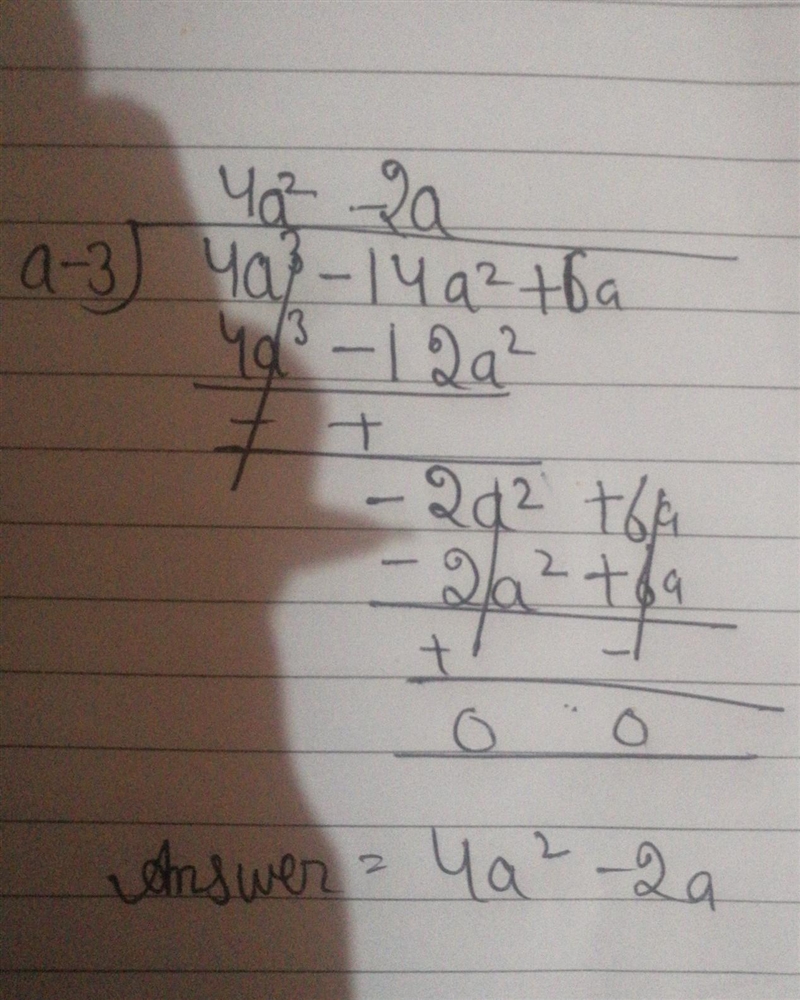 4a² -2a
a-3) 4a³ -14a² +6a
4a³ -12a²
- +
-2a² +6a
-2a² +6a
+ -
0 0
Answer = 4a² -2a